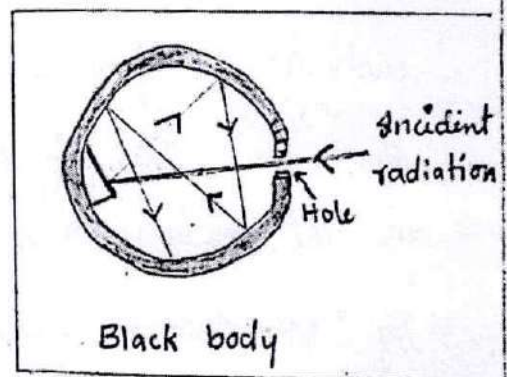 Incident
radiation
Hole
Black body